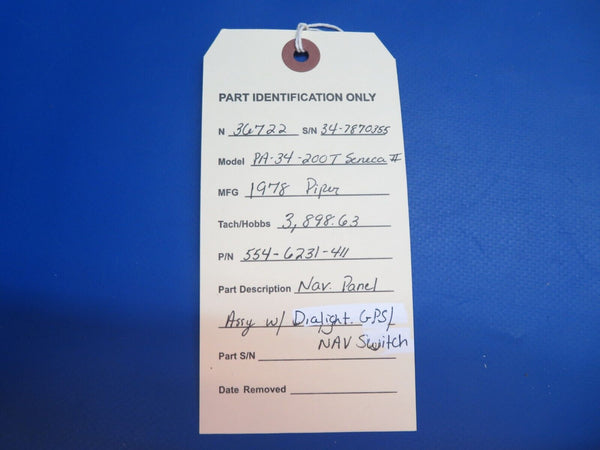 PART IDENTIFICATION ONLY
N 36722 S/N 34-7870355
Model PA-34-200T Seneca II
MFG 1978 Piper
Tach/Hobbs 3,898.63
P/N 554-6231-411
Part Description Nav. Panel
Assy w/ Dialight. GPS/
NAV Switch
Part S/N
Date Removed